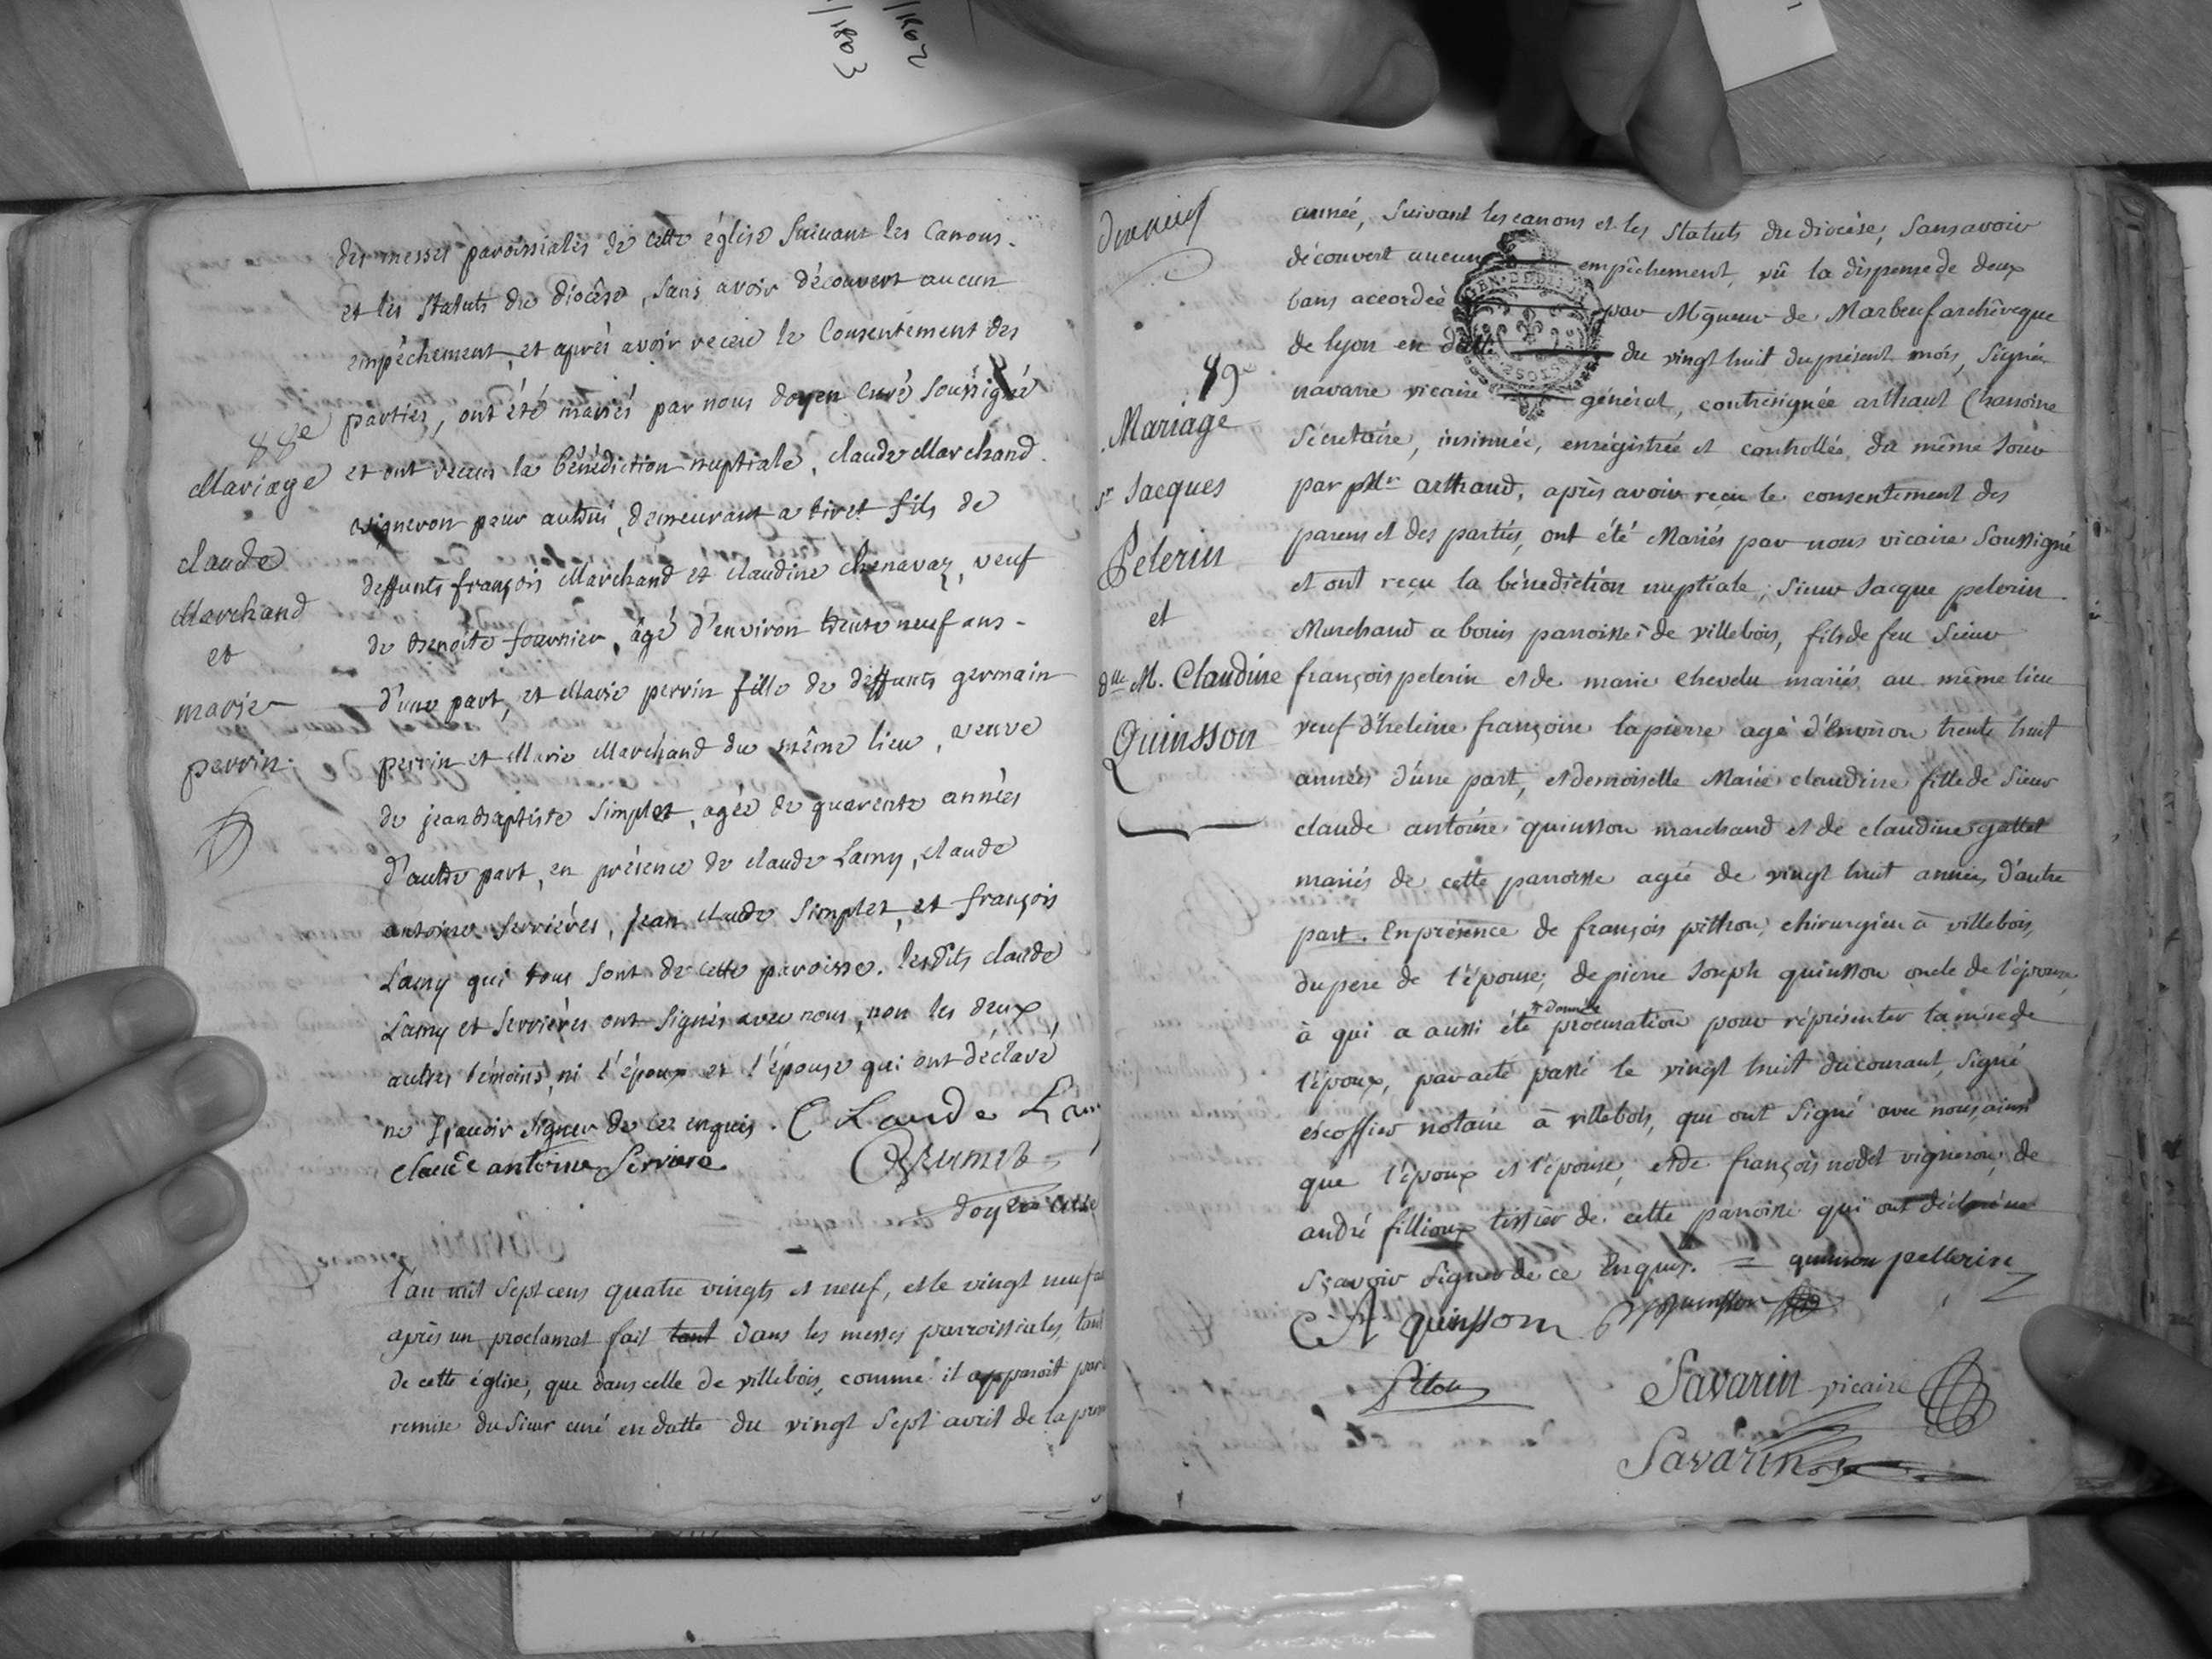 1802
1803
des messes paroissiales de cette église suivant les Canons.
et les statuts du diocèse, sans avoir découvert aucun
empêchement, et après avoir receu le Consentement des
parties, ont été mariés par nous doyen curé soussigné
88e
Mariage
claude
Marchand
et
marie
perrin.
et ont receus la bénédiction nuptiale, claude Marchand
vigneron pour autrui, demeurant a tiret fils de
deffunts françois Marchand et claudine chenavaz, veuf
de Benoite fournier, âgé d'environ trente neuf ans.
d'une part, et Marie perrin fille de deffunts germain
perrin et Marie Marchand du même lieu, veuve
de jean Baptiste Simplet, agée de quarente années
d'autre part, en présence de claude Lamy, claude
antoine Serrières, jean claude Simplet, et françois
Lamy qui tous sont de cette paroisse. lesdits claude
Lamy et Serrières ont signés avec nous, non les deux
autres témoins, ni l'époux et l'épouse qui ont déclaré
ne sçavoir signer de ce enquis. Claude Lamy
claude antoine Serriere
doyen curé
l'an mil sept cens quatre vingts et neuf, et le vingt neuf
après un proclamat fait tant dans les messes parroissiales, tant
de cette église, que dans celle de villebois, comme il apparoit par
remise du Sieur curé en datte du vingt sept avril de la
année, suivant les canons et les statuts du diocèse, sans avoir
découvert aucun empêchement, vû la dispense de deux
bans accordée par Mgneur de Marbeuf archêveque
de lyon en datte du vingt huit du présent mois, signée
navarre vicaire général, contresignée arthaud Chanoine
Sécretaire, insinuée, enrégistrée et controllée du même jour
par Mr arthaud, après avoir reçu le consentement des
parens et des parties, ont été Mariés par nous vicaire soussigné
et ont reçu la bénediction nuptiale; sieur Jacque pelerin
Marchand a bouis parroisse de villebois, fils de feu Sieur
françois pelerin et de marie chevelu mariés au même lieu
veuf d'heleine françoise lapierre agé d'environ trente huit
années d'une part, et demoiselle Marie claudine fille de Sieur
claude antoine quinsson marchand et de claudine gallet
mariés de cette parroisse agée de vingt huit années d'autre
part. En présence de françois pithon, chirurgien à villebois,
du pere de l'épouse; de pierre Joseph quinsson oncle de l'épouse,
à qui a aussi été donnée procuration pour réprésenter la mere de
l'époux, par acte passé le vingt huit du courant, signé
escoffier notaire à villebois, qui ont signé avec nous, ainsi
que l'époux et l'épouse, et de françois nodet vigneron, de
andré fillioux tissier de cette parroisse qui ont déclaré ne
sçavoir signer de ce enquis. = quinson pellerin
89e
Mariage
sr Jacques
Pelerin
et
dlle M. Claudine
Quinsson
C A quinsson
Quinsson
Piton
Savarin vicaire
Savarin